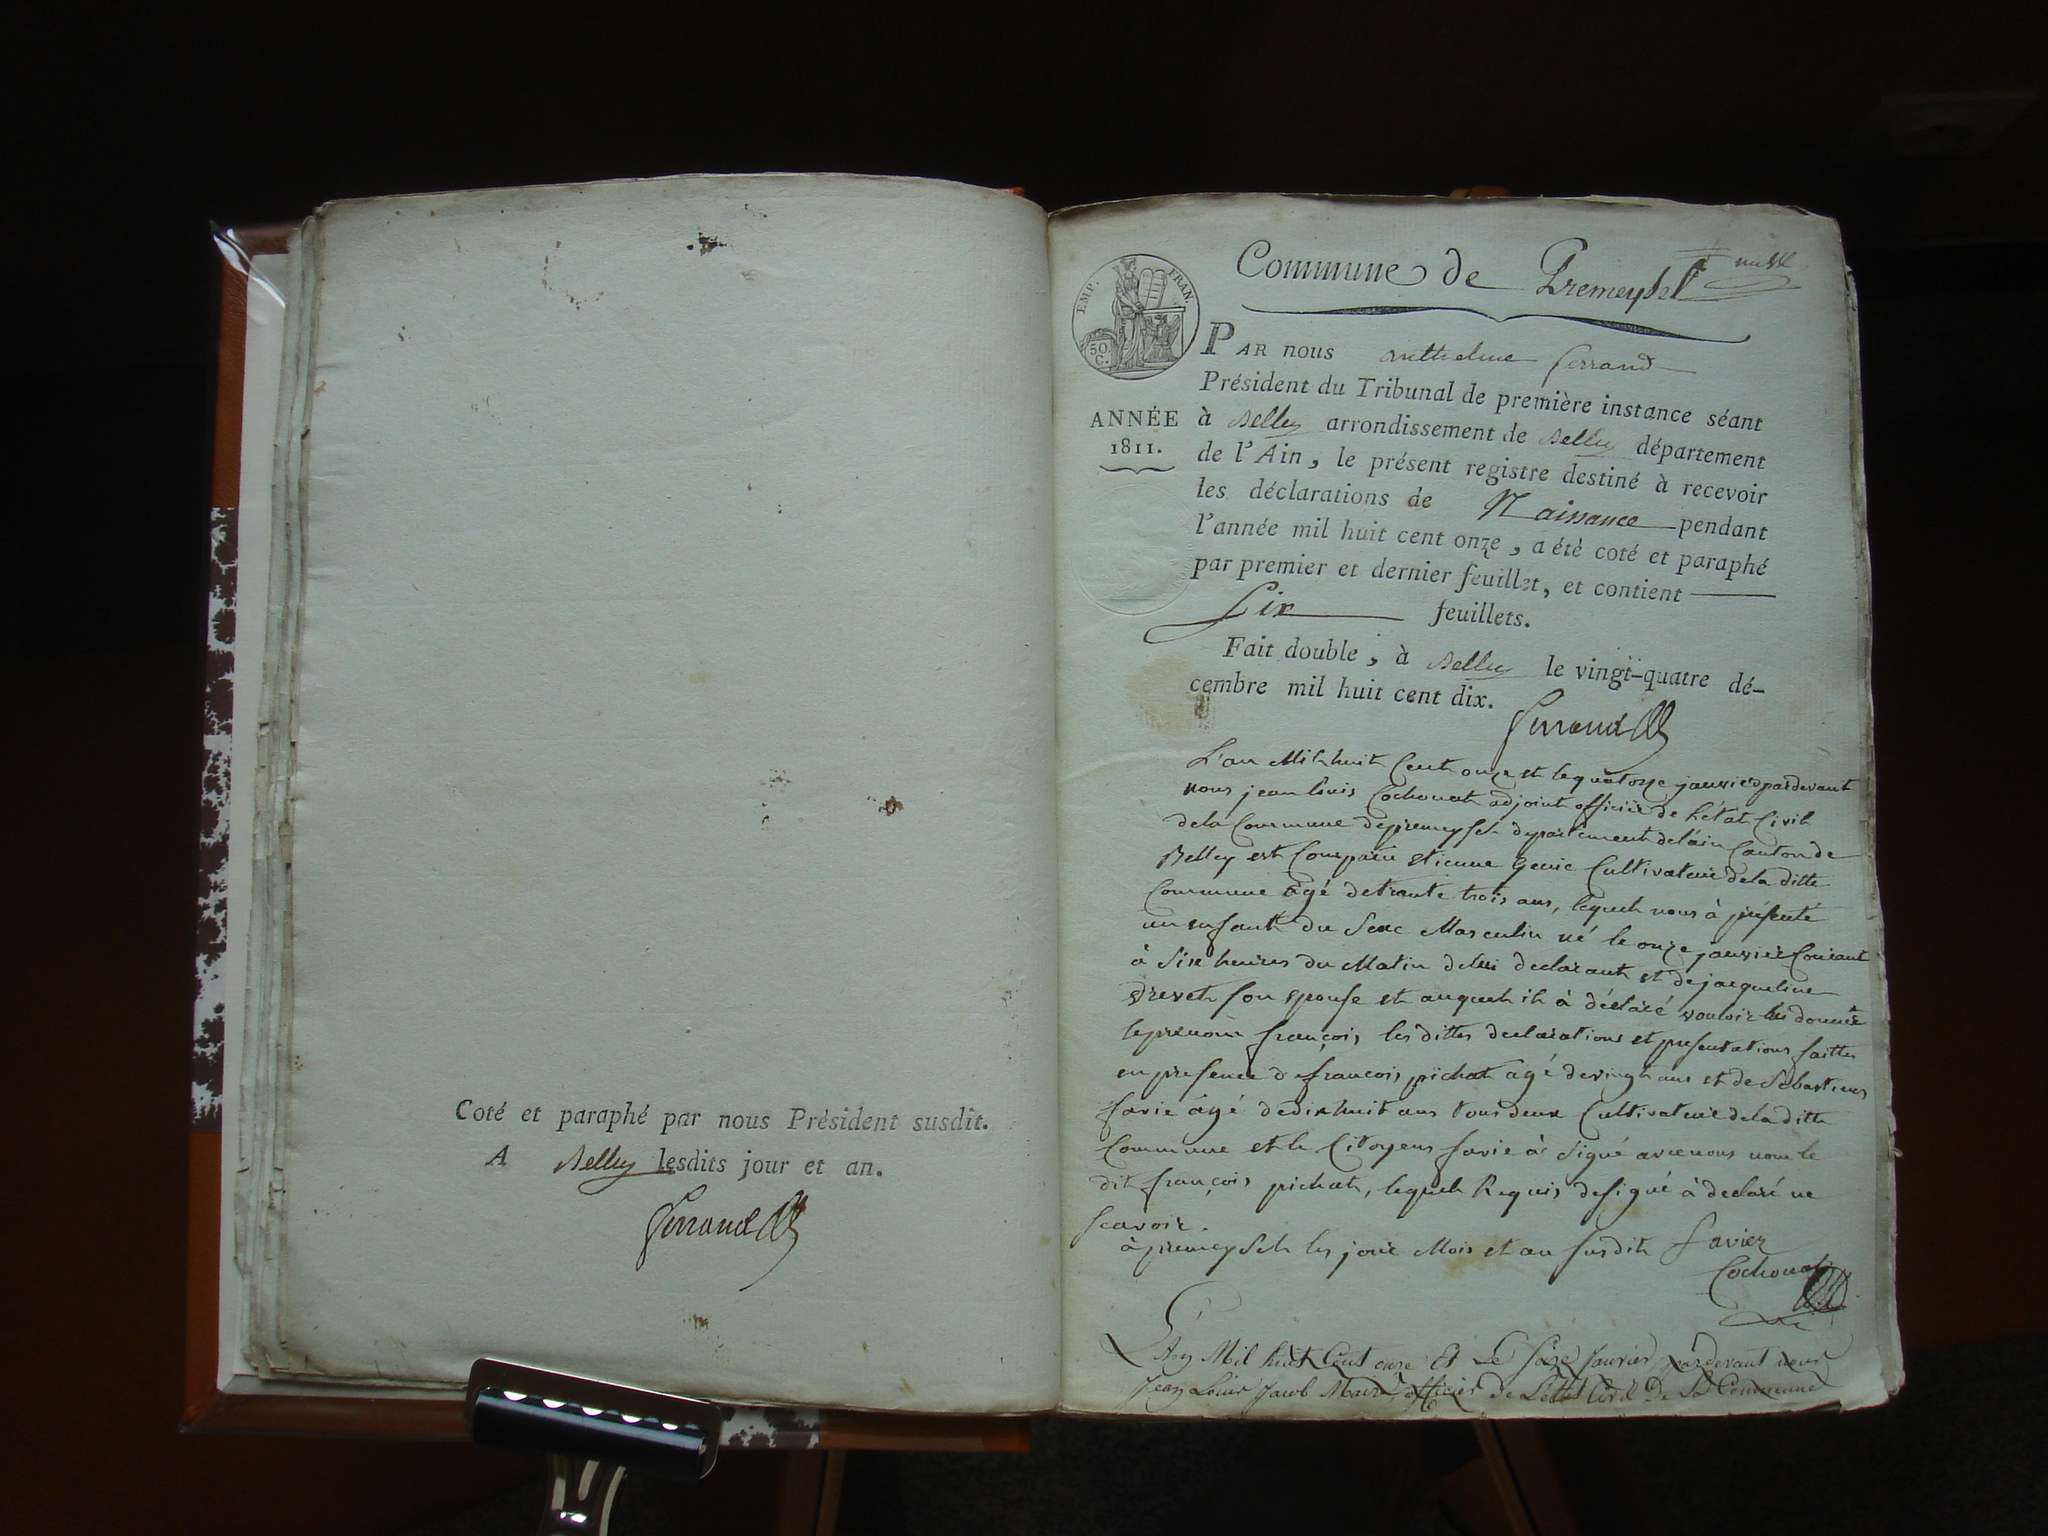 Coté et paraphé par nous Président susdit.
A Belley lesdits jour et an.
Ferrand
Commune de Premeysel
EMP. FRAN.
50 C.
ANNÉE
1811.
PAR nous Anthelme Ferrand
Président du Tribunal de première instance séant
à Belley arrondissement de Belley département
de l'Ain, le présent registre destiné à recevoir
les déclarations de Naissance pendant
l'année mil huit cent onze, a été coté et paraphé
par premier et dernier feuillet, et contient
Six feuillets.
Fait double, à Belley le vingt-quatre dé-
cembre mil huit cent dix.
Ferrand
L'an Mil huit Cent onze et le quatorze janvier pardevant
nous jean louis Cochonat adjoint officier de l'état Civil
de la Commune de premeysel departement de l'ain Canton de
Belley est Comparu etienne genie Cultivateur de la ditte
Commune âgé de trante trois ans, lequel nous à présenté
un enfant du Sexe Masculin né le onze janvier Courant
à Six heures du Matin de lui declarant et de jacqueline
drevet son epouse et auquel il à déclaré vouloir lui donner
le prenom françois, les dittes declarations et presentations faittes
en presence de francois pichat âgé de vingt ans et de Sebastien
favie âgé de dix huit ans tous deux Cultivateur de la ditte
Commune et le Citoyens favie à Signé avec nous non le
dit françois pichat, lequel Requis de signé à declaré ne
scavoir.
à premeysel les jour Mois et an susdit favier
Cochonat
L'An Mil huit Cent onze Et Le seize Janvier, pardevant nous
Jean Louis Jacob Maire, officier de L'état Civil de La Commune